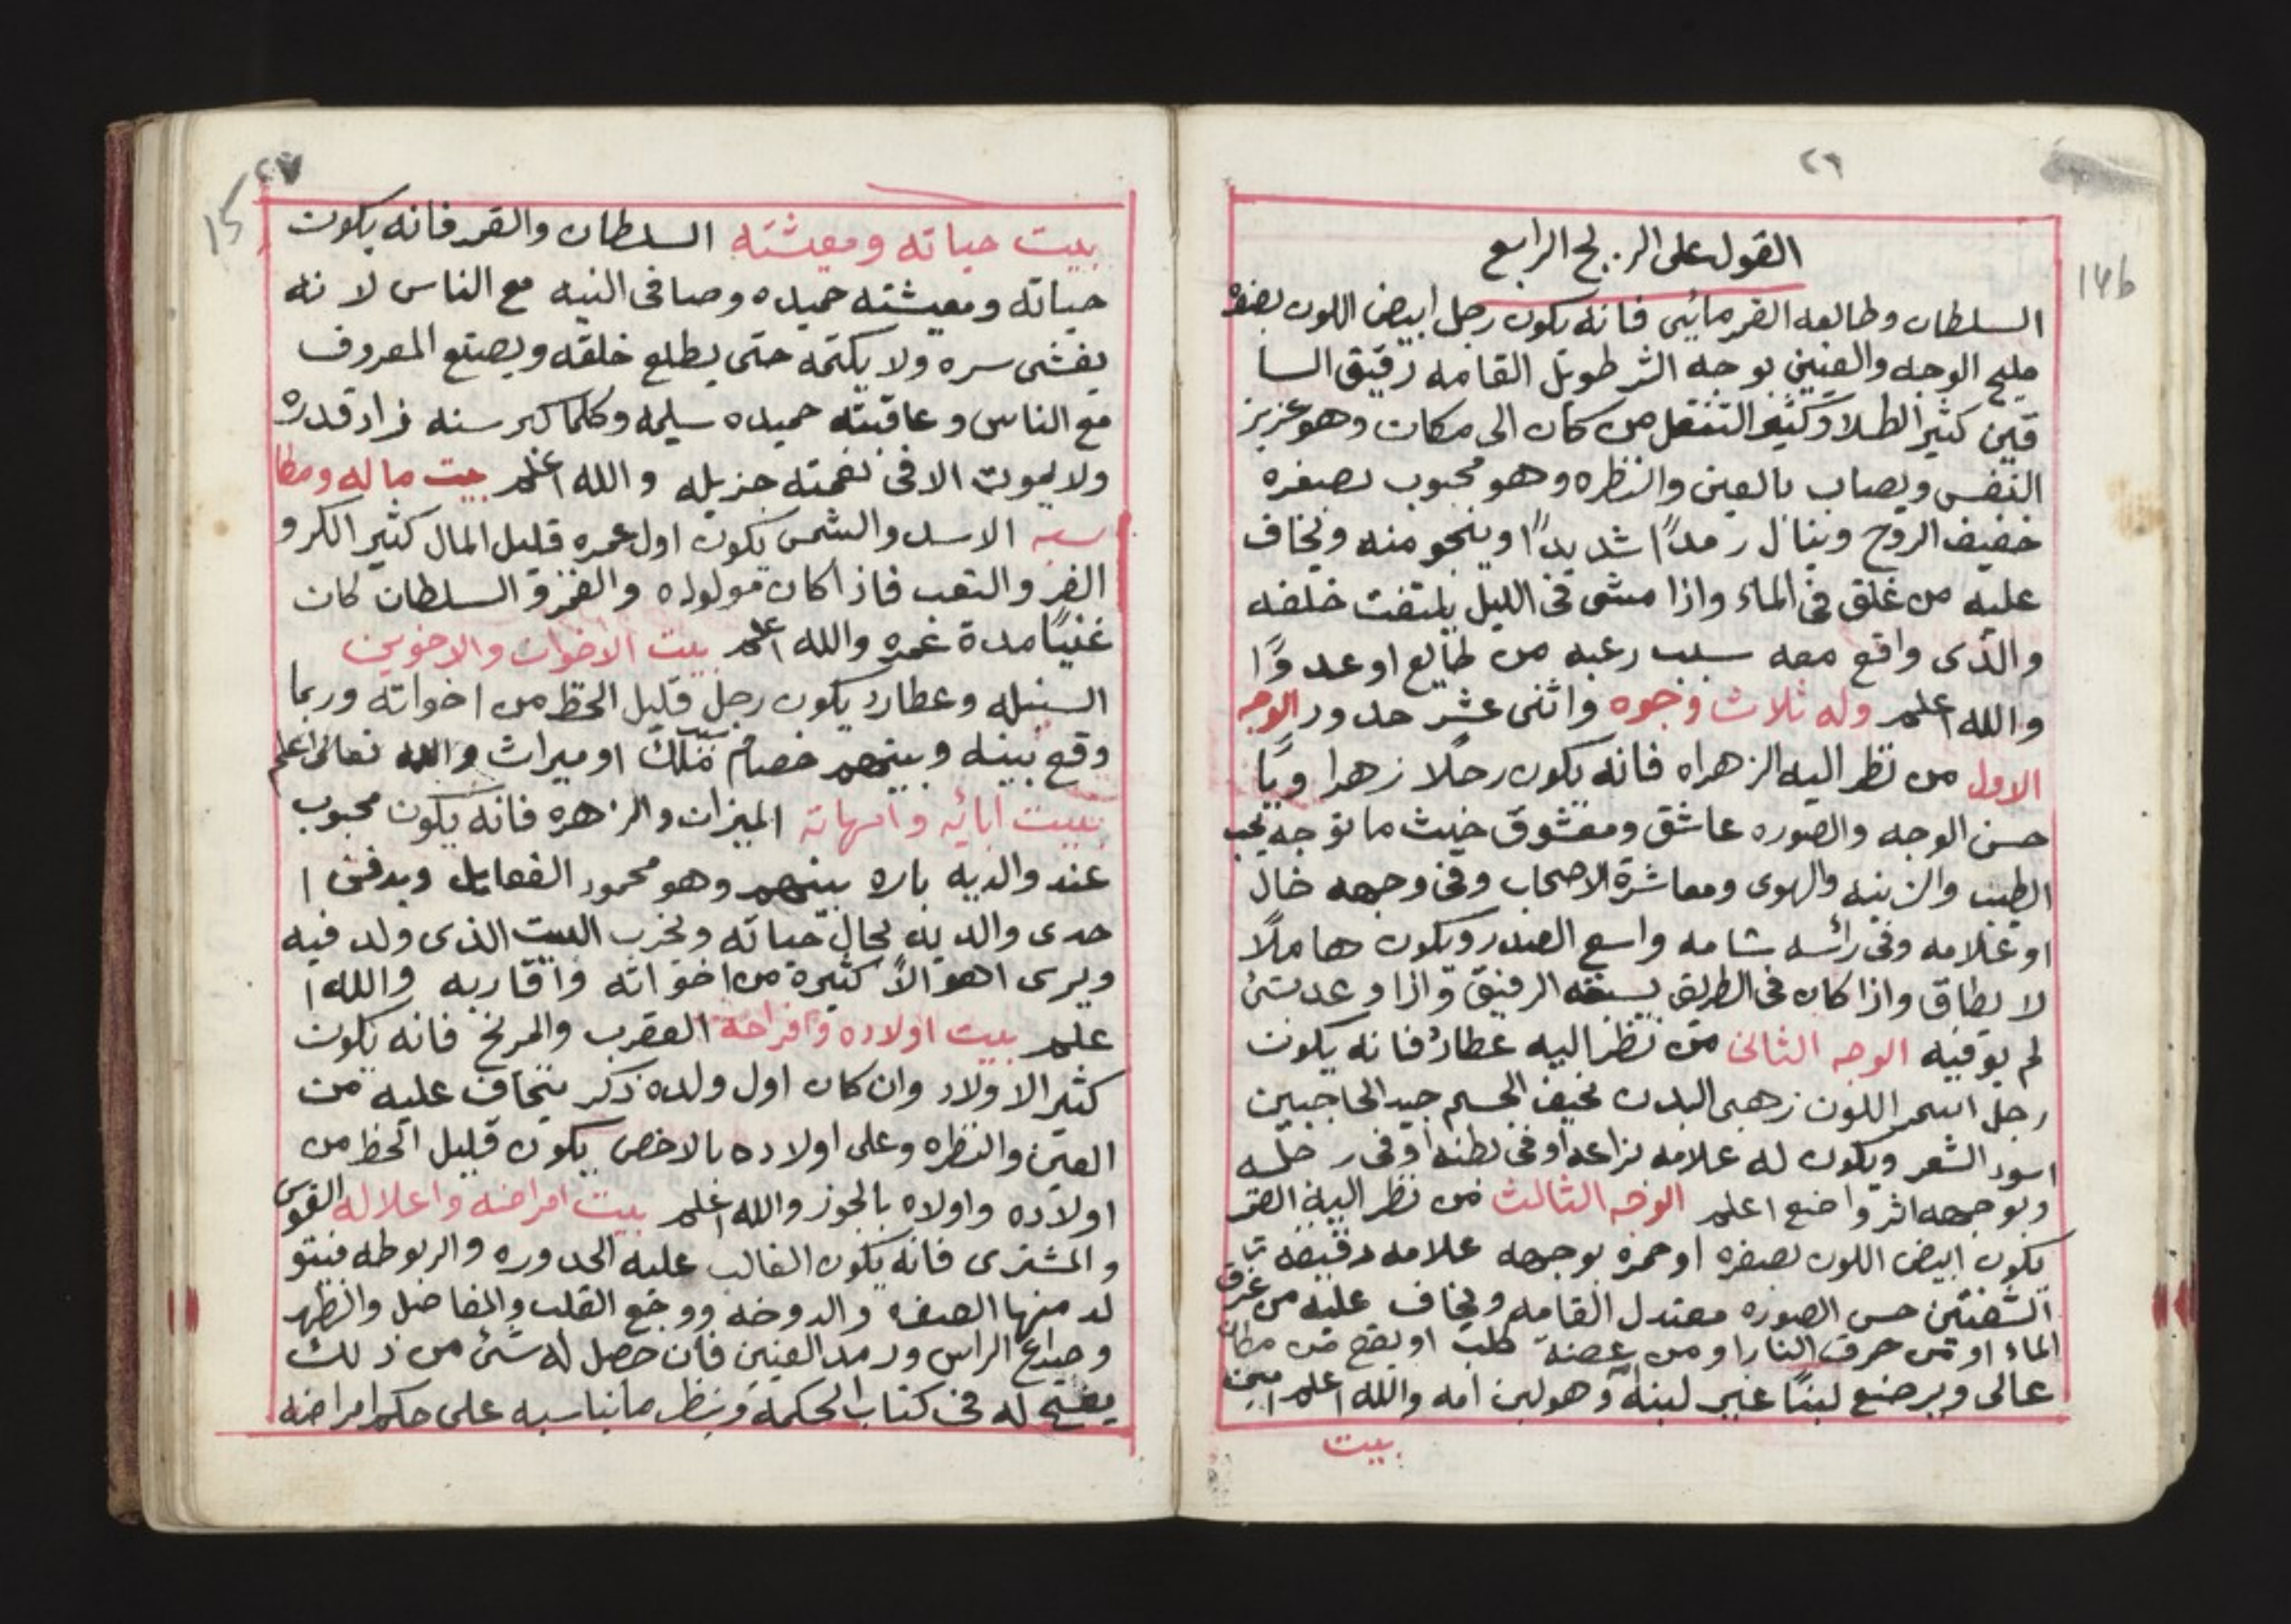 ٢٦
14b
القول على البرج الرابع
السلطان وطالعه القمر مائي فانه يكون رجل ابيض اللون بصفره
مليح الوجه والعينين بوجه اثر طويل القامه رقيق السا
قين كثير الطلاو كثير التنقل من كان الى مكان وهو عزيز
النفس ويصاب بالعين والنظره وهو محبوب بصغره
خفيف الروح وينال رمدًا شديدًا وينجو منه ويخاف
عليه من غلق في الماء واذا مشى في الليل يلتفت خلفه
والذى واقع معه سبب رعبه من طالع او عدوًا
والله اعلم وله ثلاث وجوه واثنى عشر حدود الوجه
الاول من نظر اليه الزهراه فانه يكون رجلا زهرا ويًا
حسن الوجه والصوره عاشق ومعشوق حيث ما توجه يحب
الطيب والزينه والهوى ومعاشرة الاصحاب وفي وجهه خال
او علامه وفي رائسه شامه واسع الصدر ويكون هاملًا
لا يطاق واذا كان في الطريق يسبقه الرفيق واذا وعد بشئ
لم يوفيه الوجه الثانى من نظر اليه عطارد فانه يكون
رجل اسمر اللون زهبى البدن نحيف الجسم جيد الحاجبين
اسود الشعر ويكون له علامه بزراعه او في بطنه او في رجله
وبوجهه اثر واضع اعلم الوجه الثالث من نظر اليه القمر
يكون ابيض اللون بصفره او حمره بوجهه علامه دقيقه
الشفتين حسن الصوره معتدل القامه ويخاف عليه من غرق
الماء او من حرق النار او من عضة كلب او يقع من مكان
عالى ويرضع لبنًا غير لبنه وهو لبن امه والله اعلم امين
بيت
٢٧
15
بيت حياته ومعيشته السلطان والقمر فانه يكون
حياته ومعيشته حميده وصافى النيه مع الناس لانه
يفشى سره ولا يكتمه حتى يطلع خلقه ويصنع المعروف
مع الناس وعاقبته حميده سليمه وكلما كبر سنه زاد قدره
ولا يموت الا في نعمته جزيله والله اعلم بيت ماله ومكا
سبه الاسد والشمس يكون اول عمره قليل المال كثير الكر و
الفر والتعب فاذا كان مولوده والقمر في السلطان كان
غنيًا مدة عمره والله اعلم بيت الاخوات والاخوين
السنبله وعطارد يكون رجل قليل الحظ من اخواته وربما
وقع بينه وبينهم خصام تملك او ميراث والله تعالى اعلم
بييت ابائه وامهاته الميزان والزهره فانه يكون محبوب
عند والديه باره بينهم وهو محمود الفعايل ويدفن ا
حدى والديه بحال حياته ويخرب البيت الذى ولد فيه
ويرى اهوالًا كثيرة من اخواته واقاربه والله ا
علم بيت اولاده وافراحه العقرب والمريخ فانه يكون
كثير الاولاد وان كان اول ولده ذكر يخاف عليه من
العين والنظره وعلى اولاده بالاخص يكون قليل الحظ من
اولاده واولاه بالجوز والله اعلم بيت امراضه واعلاله القوس
والمشترى فانه يكون الغالب عليه الحدوره والربوطه فيتو
لد منها الضعف والدوخه ووجع القلب والمفاصل والظهر
وصداع الراس ورمد العينين فان حصل له شئ من ذلك
يفتح له في كتاب الحكمة وينظر ما يناسبه على حكم امراضه